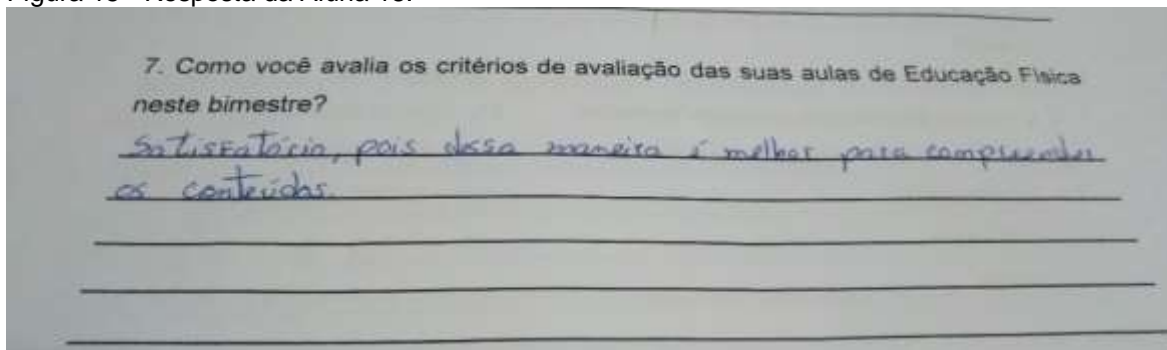 7. Como você avalia os critérios de avaliação das suas aulas de Educação Física
neste bimestre?
Satisfatório, pois dessa maneira é melhor para compreender
os conteúdos.